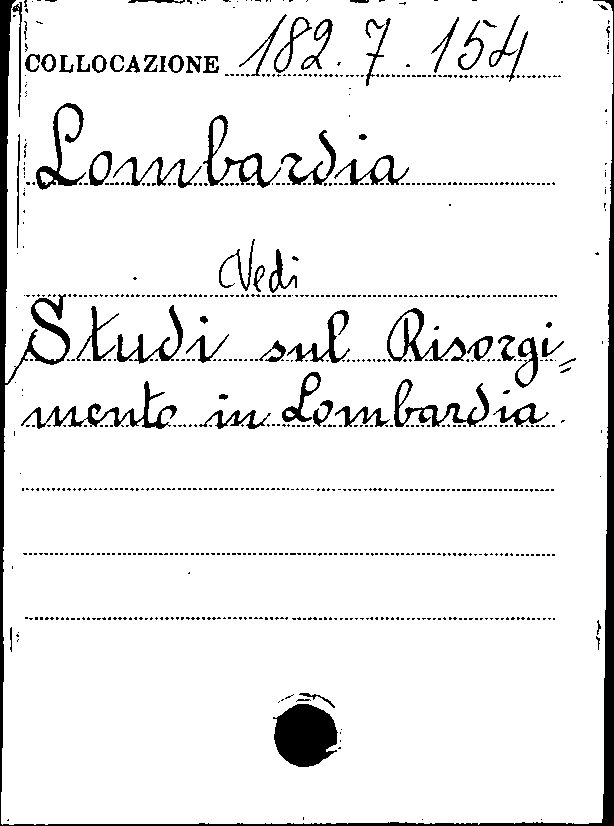 COLLOCAZIONE 182.7.154
Lombardia
Vedi
Studi sul Risorgi=
mento in Lombardia.